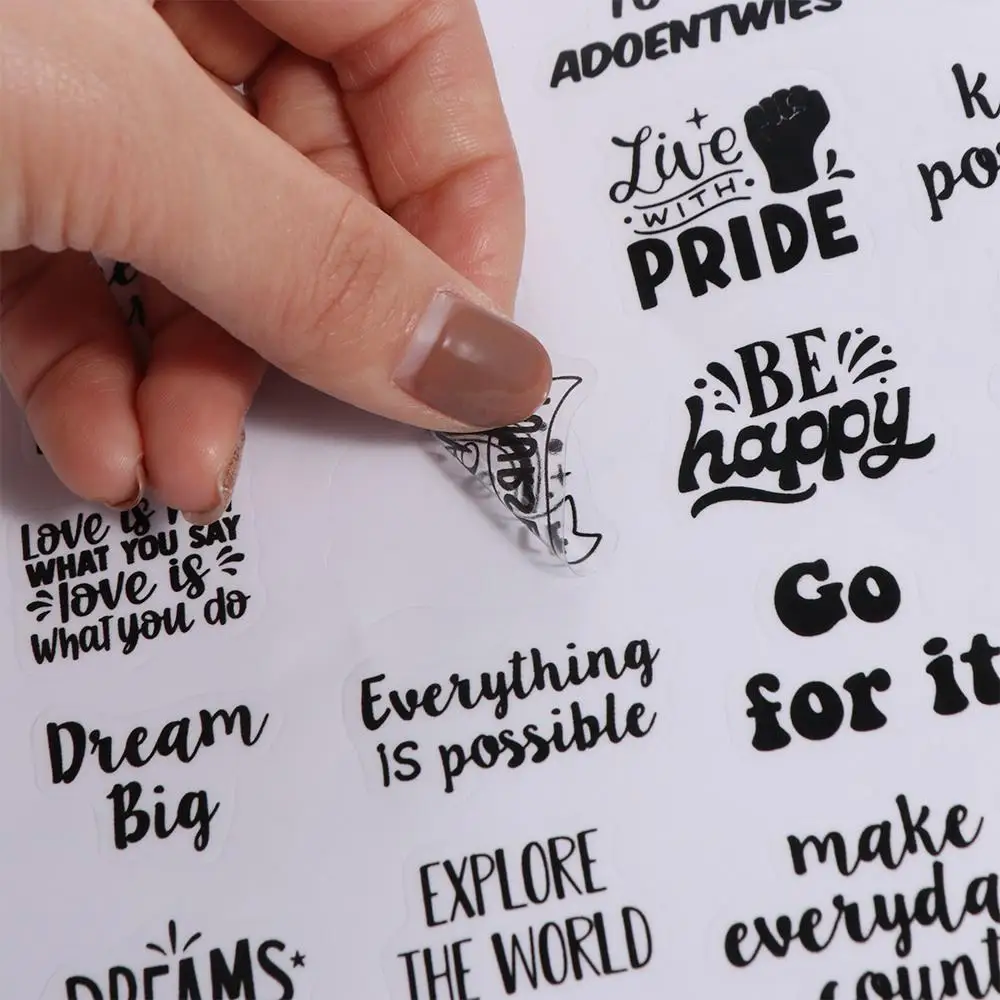 TO
ADOENTWIES
Live
WITH
PRIDE
k
po
BE
happy
LOVE IS
WHAT YOU SAY
love is
what you do
Go
for it
Everything
IS possible
Dream
Big
make
everyda
count
EXPLORE
THE WORLD
DREAMS